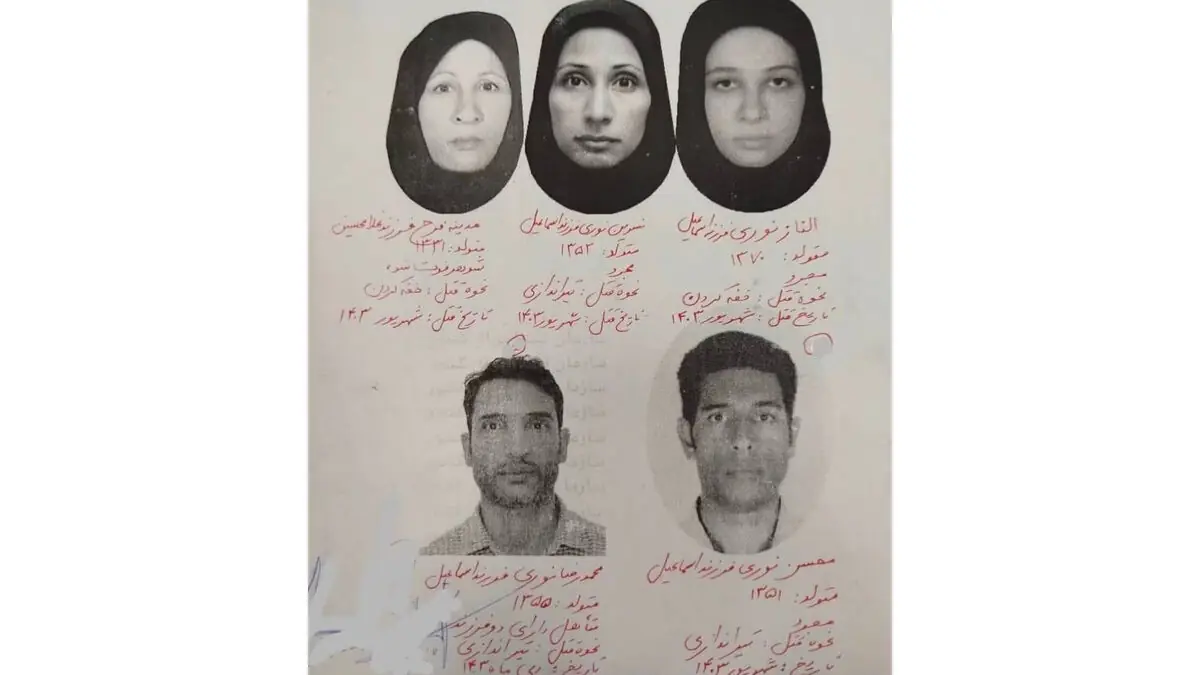 الناز نوری فرزند اسماعیل
متولد: ۱۳۷۰
مجرد
نحوه قتل: خفه کردن
تاریخ قتل: شهریور ۱۴۰۳
نسرین نوری فرزند اسماعیل
متولد: ۱۳۵۲
مجرد
نحوه قتل: تیراندازی
تاریخ قتل: شهریور ۱۴۰۳
مدینه فرخ فرزند غلامحسین
متولد: ۱۳۳۱
شوهر فوت شده
نحوه قتل: خفه کردن
تاریخ قتل: شهریور ۱۴۰۳
محسن نوری فرزند اسماعیل
متولد: ۱۳۵۱
مجرد
نحوه قتل: تیراندازی
تاریخ: شهریور ۱۴۰۳
محمدرضا نوری فرزند اسماعیل
متولد: ۱۳۵۵
متأهل دارای دو فرزند
نحوه قتل: تیراندازی
تاریخ: دی ماه ۱۴۰۳